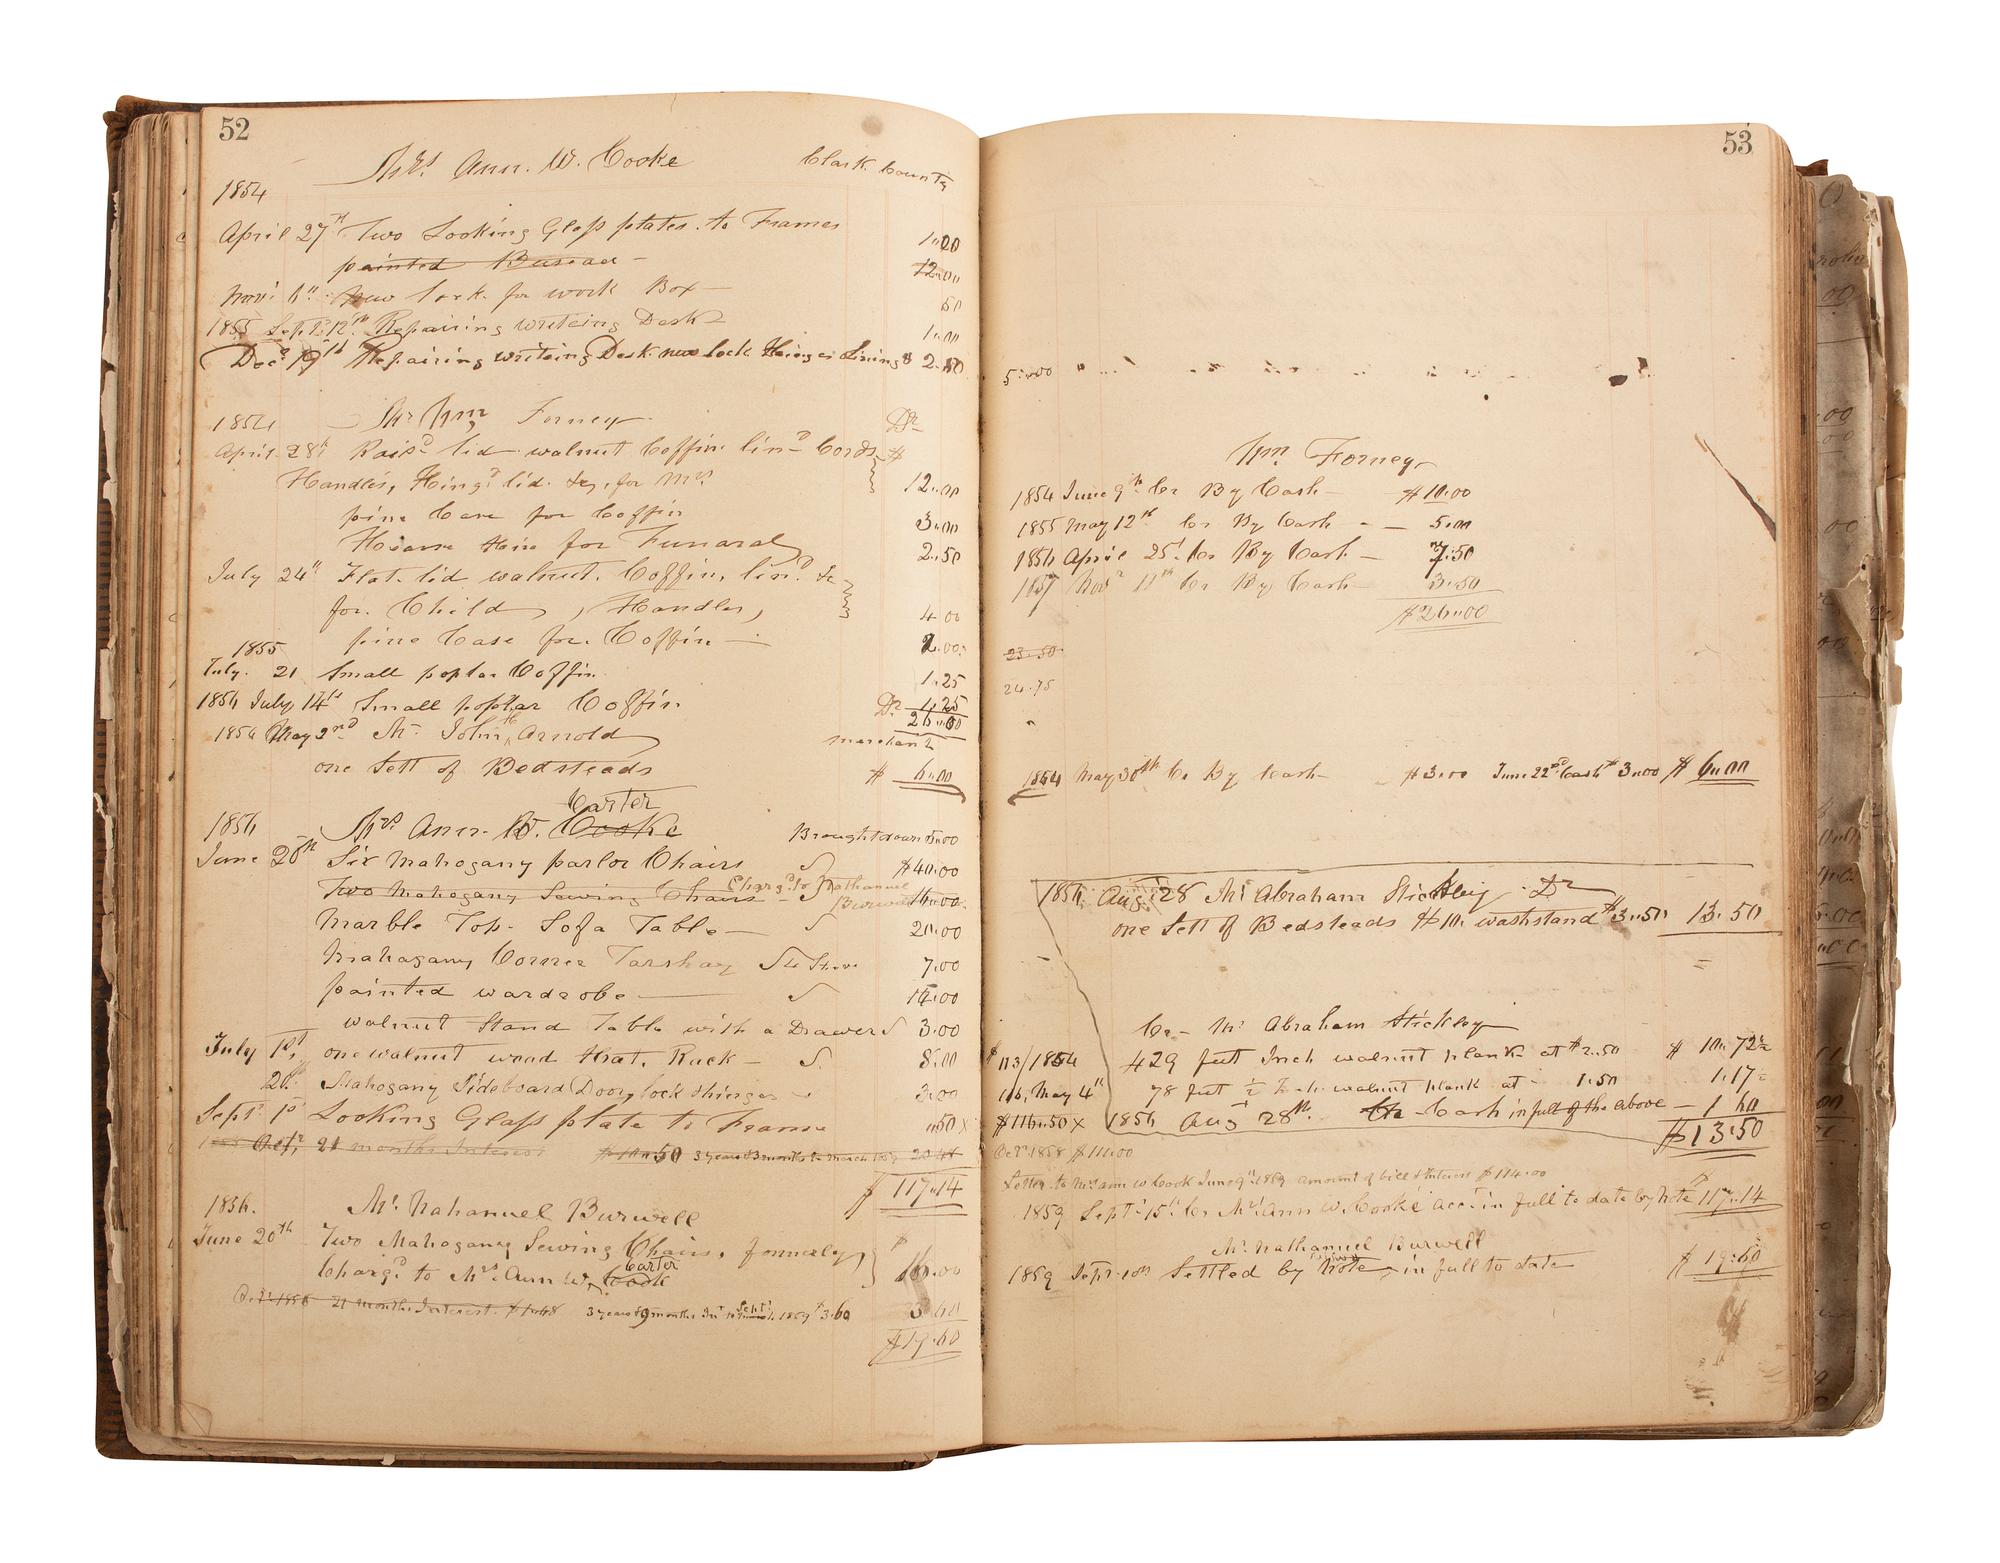 52
Mrs. Ann. W. Cooke Clark County
1854
April 27th Two Looking Glass plates. to Frames 1.00
painted Bureau — 12.00
Novr 6th New lock for work Box — 50
1855 Sept. 12th Repairing writeing Desk 1.00
Decr 19th Repairing writeing Desk new lock Hinges Lining & 2.50
1854 Mr Wm Forney Dr
April 28th Raisd lid walnut Coffin lind Cords $
Handles, Hingd lid. &c, for Mrs 12.00
pine Case for Coffin 3.00
Hearse Hire for Funaral 2.50
July 24th Flat lid walnut. Coffin, lind. &c
for Child, Handles, 4 00
pine Case for Coffin — 2.00
1855
July. 21 Small poplar Coffin 1.25
1856 July 14th Small poplar Coffin Dr 1.25
26.00
1854 May 2nd Mr John H Arnold merchant
one Sett of Bedsteads $ 6.00
Carter
1856 Mrs Ann. W. Cooke Brought down 5.00
June 20th Six Mahogany parlor Chairs $40.00
Two Mahogany Sewing Chairs Chargd to Nathanuel Burwell 16.00
Marble Top. Sofa Table — 20.00
Mahogany Corner Tarshay 7.00
painted wardrobe — 14.00
walnut Stand Table with a Drawer 3.00
July 1st, one walnut wead that. Rack — 8.00
20th Mahogany Sideboard Door, lock & hinges 3.00
Sept. 1st Looking Glass plate to Frame .50 x
Octr 21 months Interest 3 years & 3 months to March 1859
$ 117.14
1856. Mr. Nahanuel Burwell
June 20th Two Mahogany Sewing Chairs, formerly $
Chargd to Mrs Ann W. Cook Carter 16.00
Octr 1858 21 months Interest. $1.68 3 years & 9 months Int to Sept. 1859 $3.60 3 60
$19.60
53
5.00
Wm Forney
1854 June 9th Cr By Cash — $10.00
1855 May 12th Cr By Cash - — 5.00
1856 April 25th Cr By Cash — 7.50
1857 Novr 11th Cr By Cash — 3.50
$26.00
23.50
24.75
1854 May 30th Cr By Cash — $3.00 June 22nd Cash $3.00 $ 6.00
1856 Aug. 28 Mr Abraham Stickley Dr
one Sett of Bedsteads $10. washstand $3.50 13.50
Cr — Mr Abraham Stickley
$113/1854 429 feet Inch walnut plank at $2.50 $ 10.72½
116, May 4th 78 feet ½ Inch walnut plank at — 1.50 1.17
$116.50 x 1856 Aug 28th. Cr Cash in full of the above — 1 60
$13.50
Octr 1858 $111.00
Letter to Mrs Ann W Cook June 9th 1859 amount of bill & Interest $114.00
1859 Sept. 15th Cr Mrs Ann W. Cooke acct in full to date by Note $ 117.14
Mr Nathanuel Burwell
1859 Sept. 10th Settled by Note in full to date $ 19.60